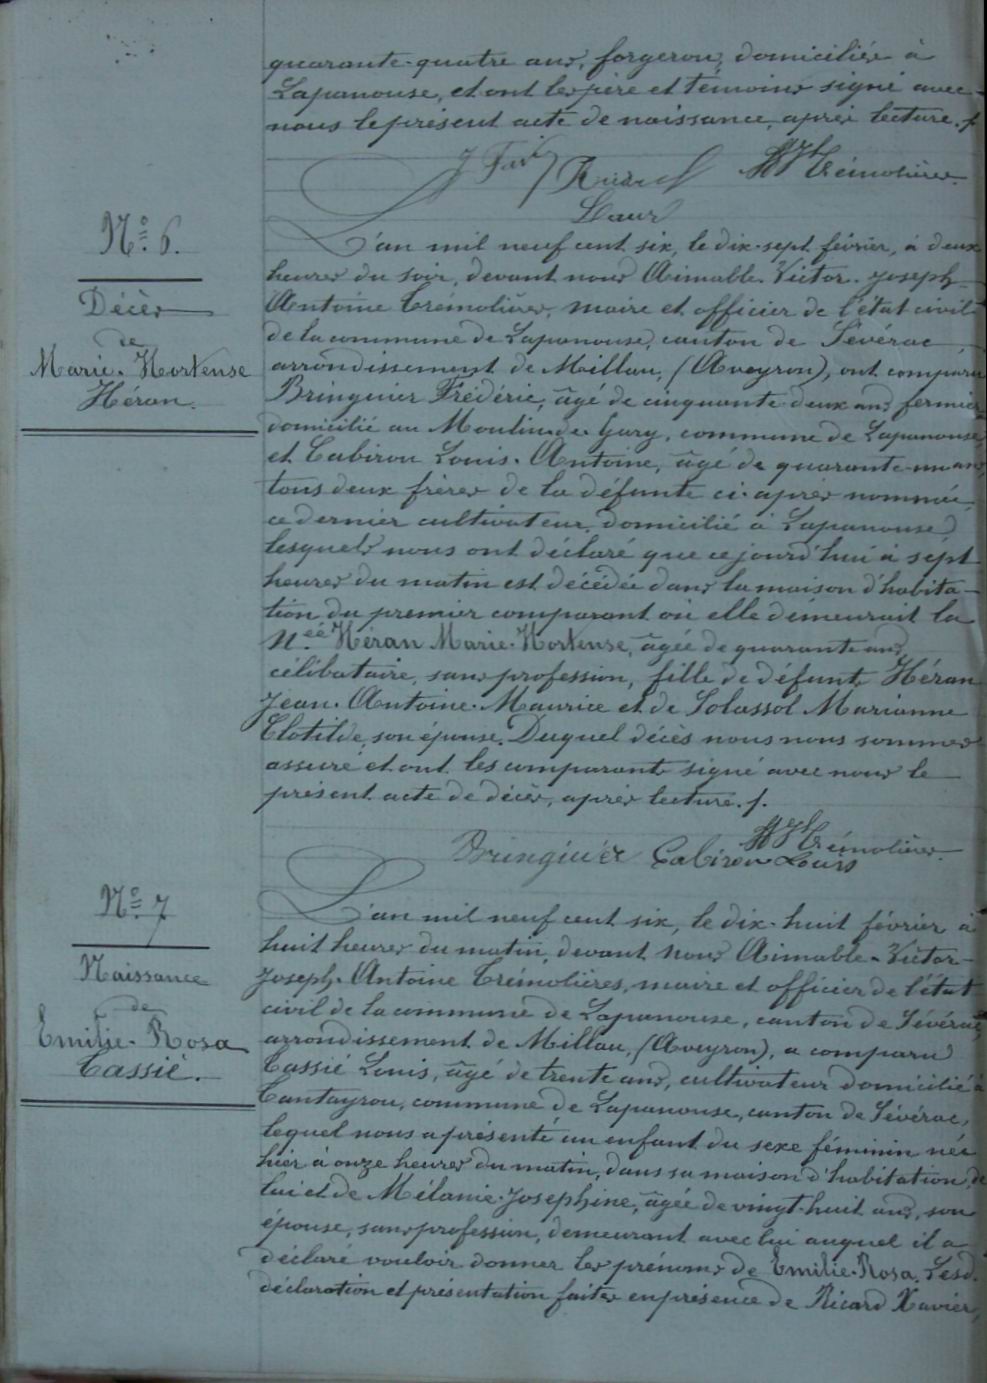 quarante-quatre ans, forgeron, domiciliés à
Lapanouse, et ont les père et témoins signé avec
nous le présent acte de naissance, après lecture. /.
Ricard
AVJ Trémolières
Laur
N° 6.
Décès
de
Marie-Hortense
Héran.
L'an mil neuf cent six, le dix-sept février, à deux
heures du soir, devant nous Aimable-Victor-Joseph-
Antoine Trémolières, maire et officier de l'état civil
de la commune de Lapanouse, canton de Sévérac,
arrondissement de Millau, (Aveyron), ont comparu
Bringuier Frédéric, âgé de cinquante-deux ans fermier
domicilié au Moulin de Gary, commune de Lapanouse,
et Cabirou Louis-Antoine, âgé de quarante-un ans,
tous deux frères de la défunte ci-après nommée,
ce dernier cultivateur, domicilié à Lapanouse
lesquels nous ont déclaré que ce jourd'hui à sept
heures du matin est décédée dans la maison d'habita-
tion du premier comparant où elle demeurait la
N.ée Héran Marie-Hortense, âgée de quarante ans
célibataire, sans profession, fille de défunts Héran
Jean-Antoine-Maurice et de Solassol Marianne
Clotilde, son épouse. Duquel décès nous nous sommes
assuré et ont les comparants signé avec nous le
présent acte de décès, après lecture. /.
AVJ Trémolières
Bringuier Cabirou Louis
N° 7
Naissance
de
Emilie-Rosa
Cassié.
L'an mil neuf cent six, le dix-huit février à
huit heures du matin, devant nous Aimable-Victor-
Joseph-Antoine Trémolières, maire et officier de l'état
civil de la commune de Lapanouse, canton de Sévérac,
arrondissement de Millau, (Aveyron), a comparu
Cassié Louis, âgé de trente ans, cultivateur domicilié à
Cantayrou, commune de Lapanouse, canton de Sévérac,
lequel nous a présenté un enfant du sexe féminin née
hier à onze heures du matin, dans sa maison d'habitation, de
lui et de Mélanie-Josephine, âgée de vingt-huit ans, son
épouse, sans profession, demeurant avec lui auquel il a
déclaré vouloir donner les prénoms de Emilie-Rosa. Lesd.
déclaration et présentation faites en présence de Ricard Xavier,